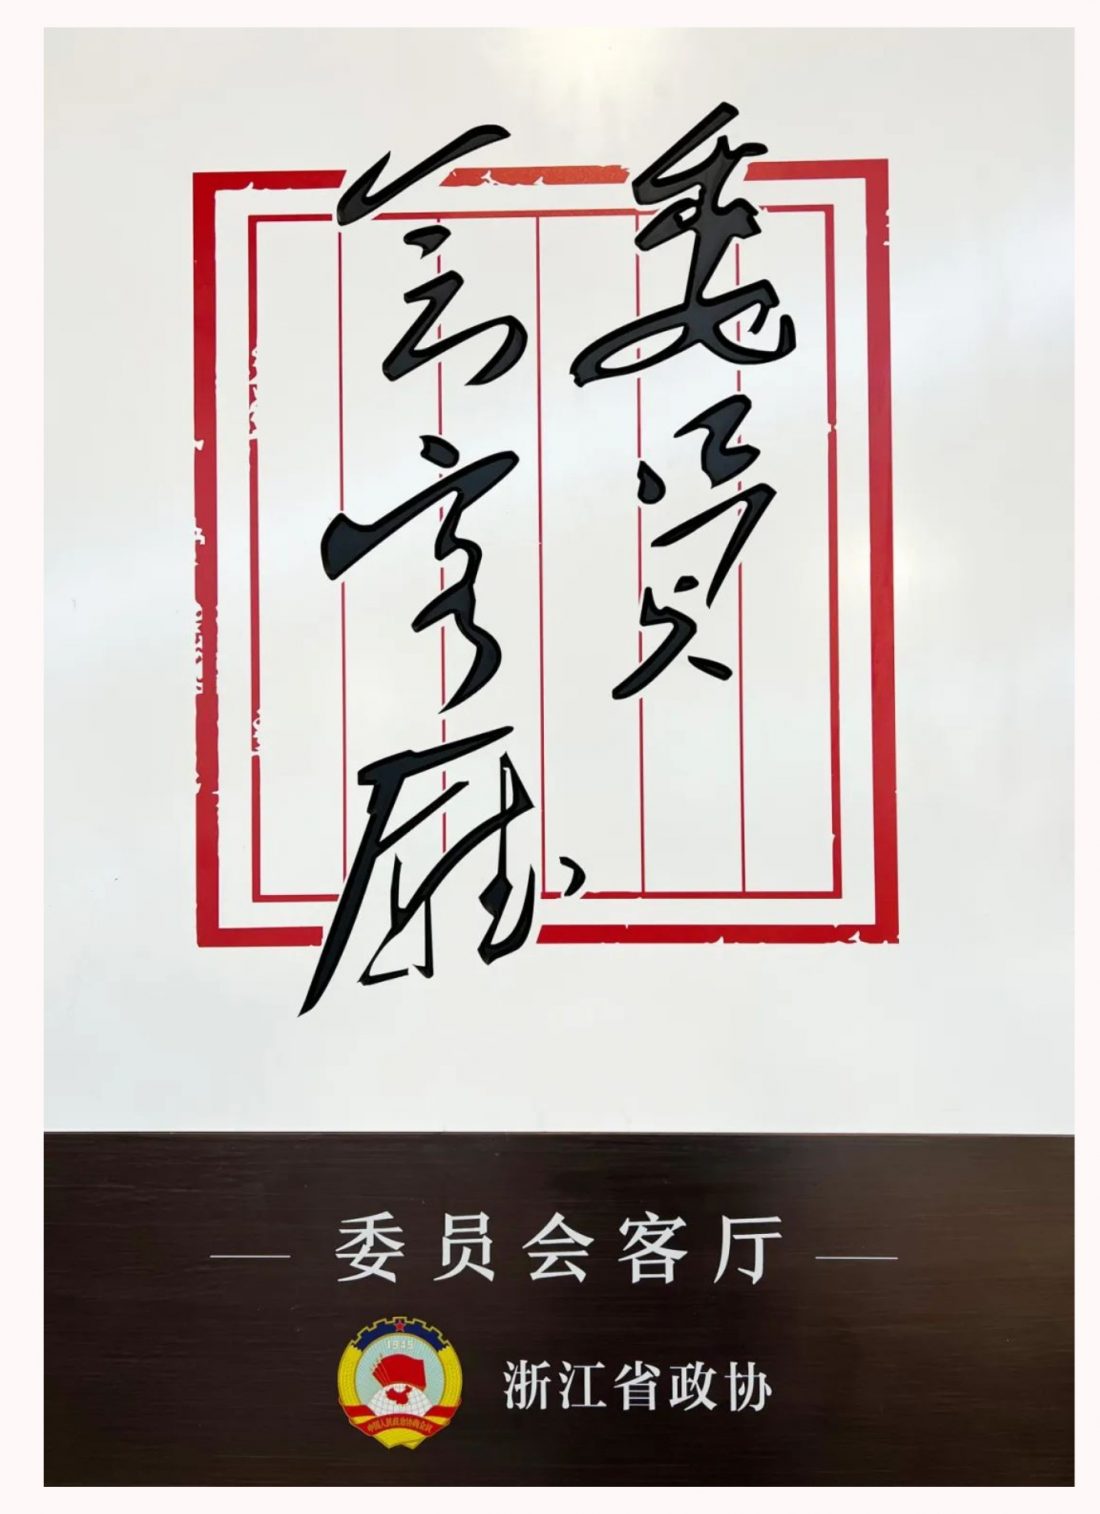 委员
会客厅
委员会客厅
1949
中国人民政治协商会议
浙江省政协